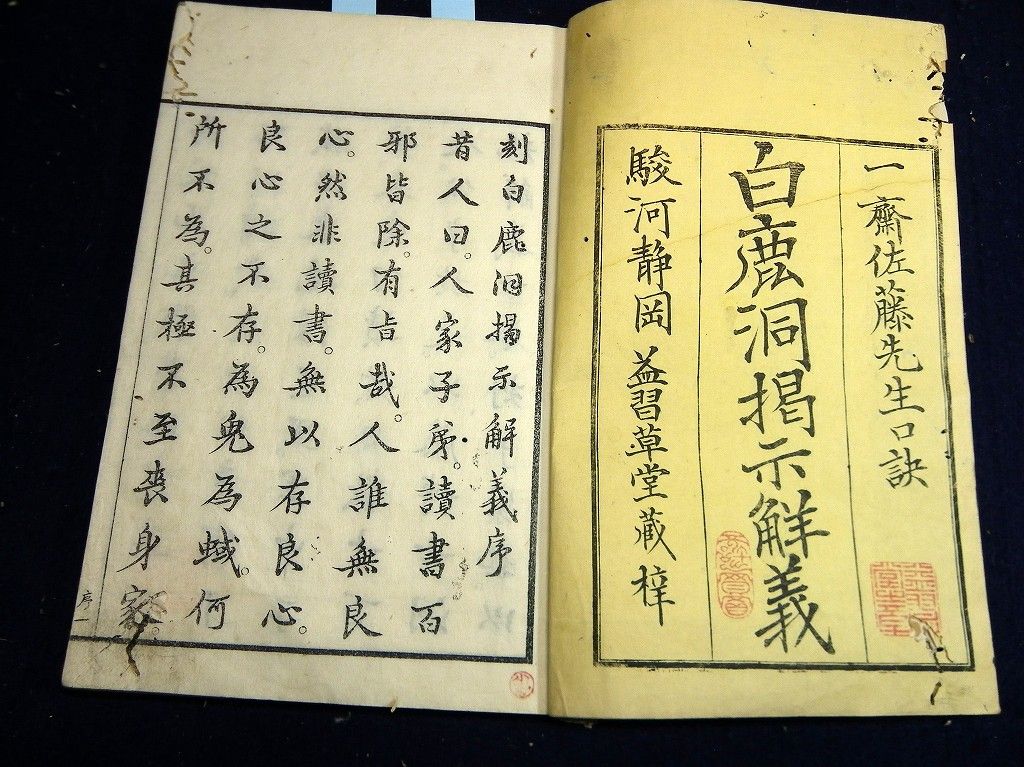 一齋佐藤先生口訣
白鹿洞掲示解義
駿河静岡 益習草堂藏梓
刻白鹿洞掲示解義序
昔人曰。人家子弟。讀書百
邪皆除。有旨哉。人誰無良
心。然非讀書。無以存良心。
良心之不存。為鬼為蜮。何
所不為。其極不至喪身家。
序 一